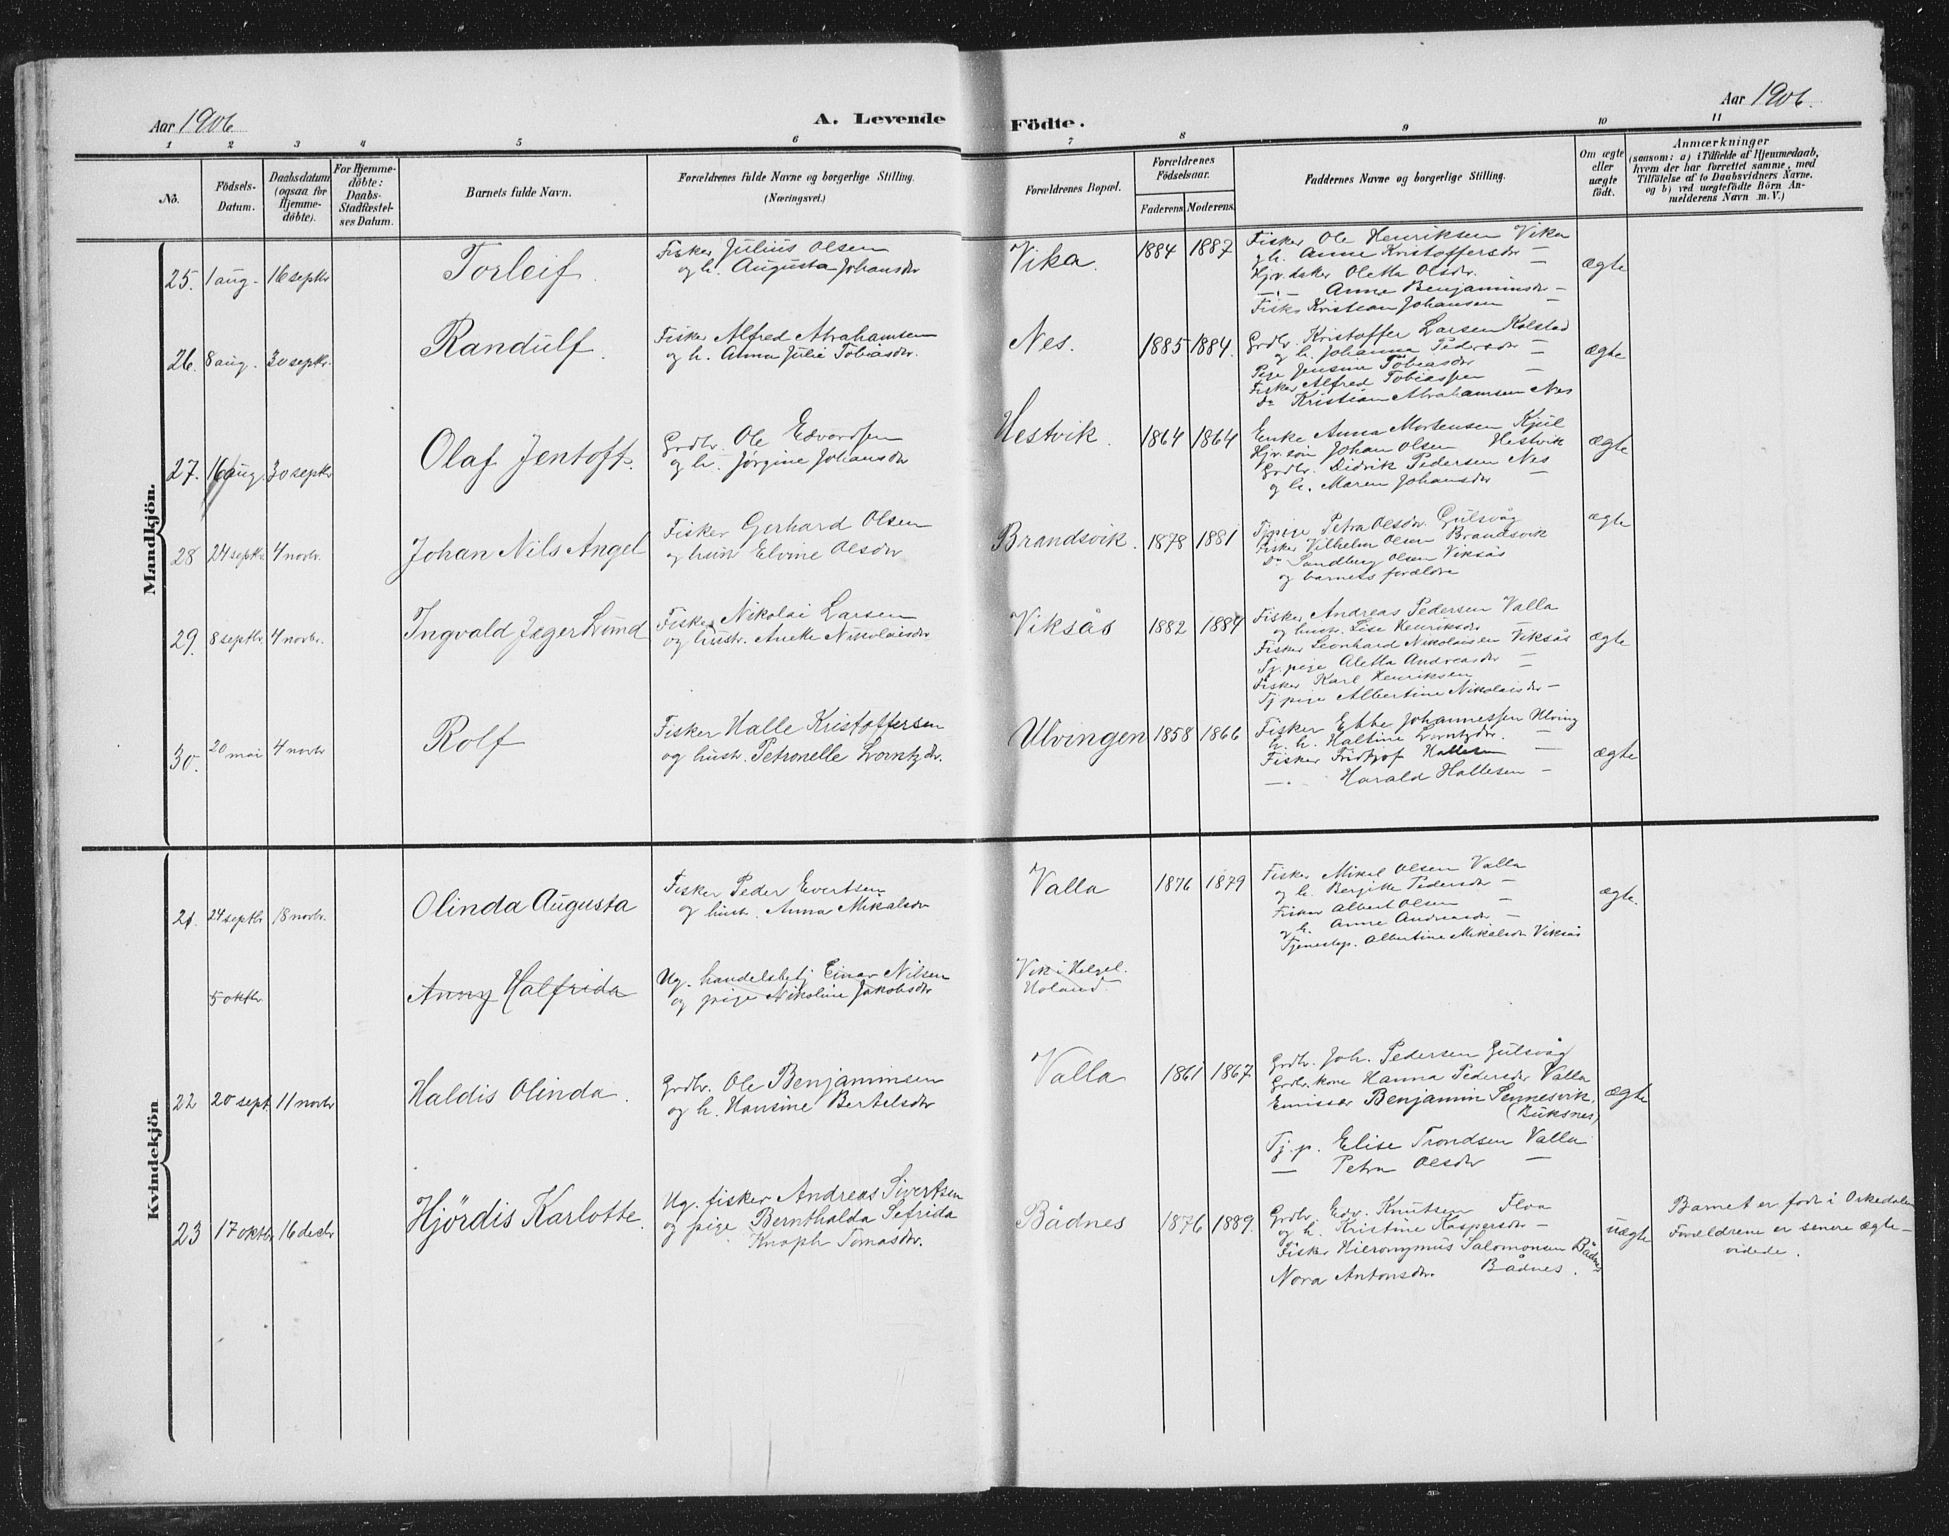 Aar 1906. A. Levende Födte. Aar 1906.
1 2 3 4 5 6 7 8 9 10 11
No.
Födsels-Datum.
Daabsdatum (ogsaa for Hjemme-døbte).
For Hjemme-døbte: Daabs-Stadfæstel-ses Datum.
Barnets fulde Navn.
Forældrenes fulde Navne og borgerlige Stilling. (Næringsvei.)
Forældrenes Bopæl.
Forældrenes Födselsaar.
Faderens Moderens.
Faddernes Navne og borgerlige Stilling.
Om ægte eller uægte født.
Anmærkninger
(saasom: a) i Tilfælde af Hjemmedaab, hvem der har forrettet samme, med Tilföielse af to Daabsvidners Navne. og b) ved uægtefödte Börn An-melderens Navn m. V.)
Mandkjön.
25. 1 aug. 16 septbr Torleif.
Fisker Julius Olsen
og h. Augusta Johansdr
Vika. 1884 1887
Fisker Ole Henriksen Vika
og h. Anne Kristoffersdr —
Hjv. dsker Oletta Olsdr.
—"— Anne Benjaminsdr —
Fisk. Kristian Johansen —
ægte
26. 8 aug. 30 septbr. Randulf.
Fisker Alfred Abrahamsen
og h. Anna Julie Tobiasdr.
Nes. 1885 1884.
Grdbr. Kristoffer Larsen Kolstad
og h. Johanna Pedersdr —
Pige Jensine Tobiasdr —
Fisker Alfred Tobiassen —
Do Kristian Abrahamsen Nes
ægte
27. 16 aug. 30 septbr Olaf Jentoft.
Grdbr. Ole Edvardsen
og h. Jørgine Johansdr
Hestvik. 1864 1864
Enke Anna Mortensen Kjul
Hjv. søn Johan Olsen Hestvik
Grdbr. Didrik Pedersen Nes
og h. Maren Johansdr —
ægte
28 24 septbr 4 novbr. Johan Nils Angel
Fisker Gerhard Olsen
og hun Elvine Olsdr
Brandsvik. 1878 1881
Tj.pige Petra Olsdr. Gulsvåg
Fisker Vilhelm Olsen Brandsvik
Do Sandberg Olsen Viksås
og barnets forældre
ægte
29. 8 septbr. 4 novbr. Ingvald Jæger Lund
Fisker Nikolai Larsen
og hustr. Aneke Nikolaisdr
Viksås 1882 1884
Fisker Andreas Pedersen Valla
og hustr. Lise Henriksdr —
Fisker Leonhard Nikolaisen Viksås
Tj. pige Aletta Andreasdr —
Fisker Karl Henriksen
Tj pige Albertine Nikolaisdr —
ægte
30. 20 mai 4 novbr Rolf
Fisker Halle Kristoffersen
og hustr. Petronelle Lorntzdr.
Ulvingen 1858 1866
Fisker Ebbe Johannessen Ulving
h. h. Haltine Lorntzdr. —
Fisker Fridtjof Hallesen —
—"— Harald Hallesen —
ægte
Kvindekjön
21. 24 septbr 18 novbr. Olinda Augusta
Fisker Peder Evertsen
og hustr. Anna Mikalsdr
Valla 1876 1879
Fisker Mikal Olsen Valla
og h. Bergitte Pedersdr —
Fisker Albert Olsen —
og h. Anne Andreasdr —
Tjenestep. Albertine Mikalsdr Viksås
ægte.
5 oktbr. Anny Halfrida
Ug. handelsbetj Einar Nilsen
og pige Nikoline Jakobsdr
Vik i Helgel.
22 20 sept 11 novbr Haldis Olinda.
Grdbr. Ole Benjaminsen
og h. Hansine Bertelsdr
Valla 1861 1867
Grdbr. Joh. Pedersen Gulsvåg
Grdbr. kone Hanna Pedersdr Valla
Emissær Benjamin Sennesvik,
(Buksnes)
Tj. p. Elise Trondsen Valla
— Petra Olsdr —
ægte
23 17 oktbr 16 decbr Hjørdis Karlotte.
Ug. fisker Andreas Sivertsen
og pige Bernthalda Petrida
Knoph Tomasdr.
Bådnes 1876 1889.
Grdbr. Edv. Knutsen Floa
og h. Kristine Kaspersdr —
Fisker Hieronymus Salomonsen Bådnes
Nora Antonsdr. Bådnes.
uægte
Barnet er født i Orkedalen
Forældrene er senere ægte-
viede.